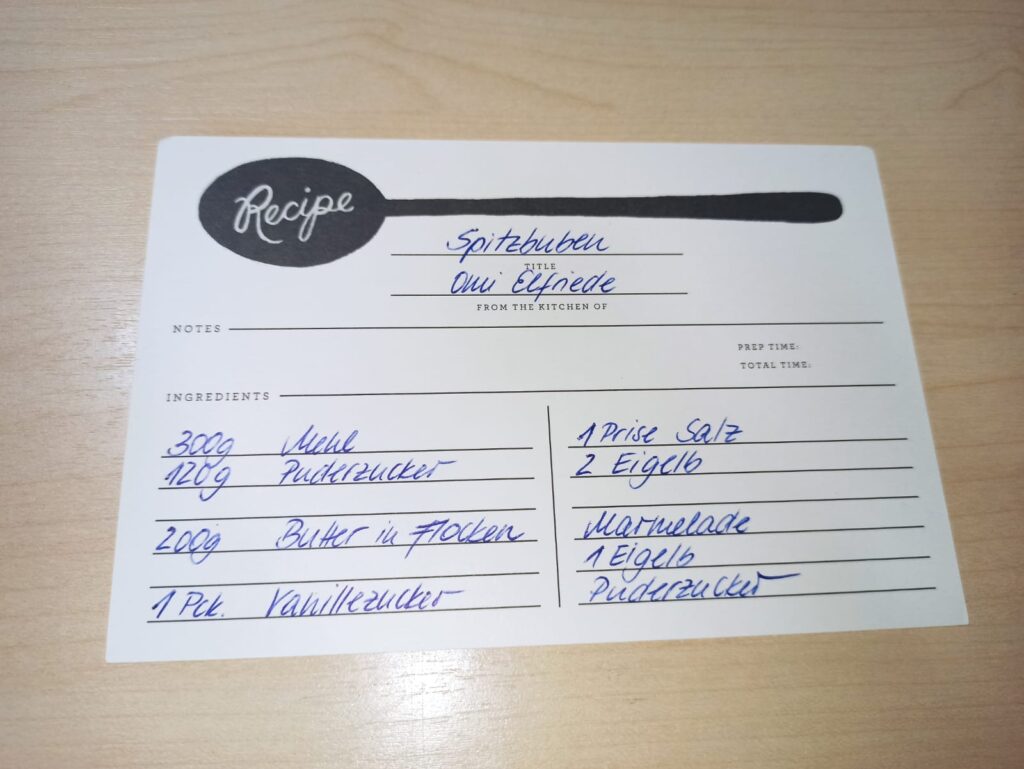 Recipe
Spitzbuben
TITLE
Omi Elfriede
FROM THE KITCHEN OF
NOTES
PREP TIME:
TOTAL TIME:
INGREDIENTS
300g Mehl
120g Puderzucker
200g Butter in Flocken
1 Pck. Vanillezucker
1 Prise Salz
2 Eigelb
Marmelade
1 Eigelb
Puderzucker